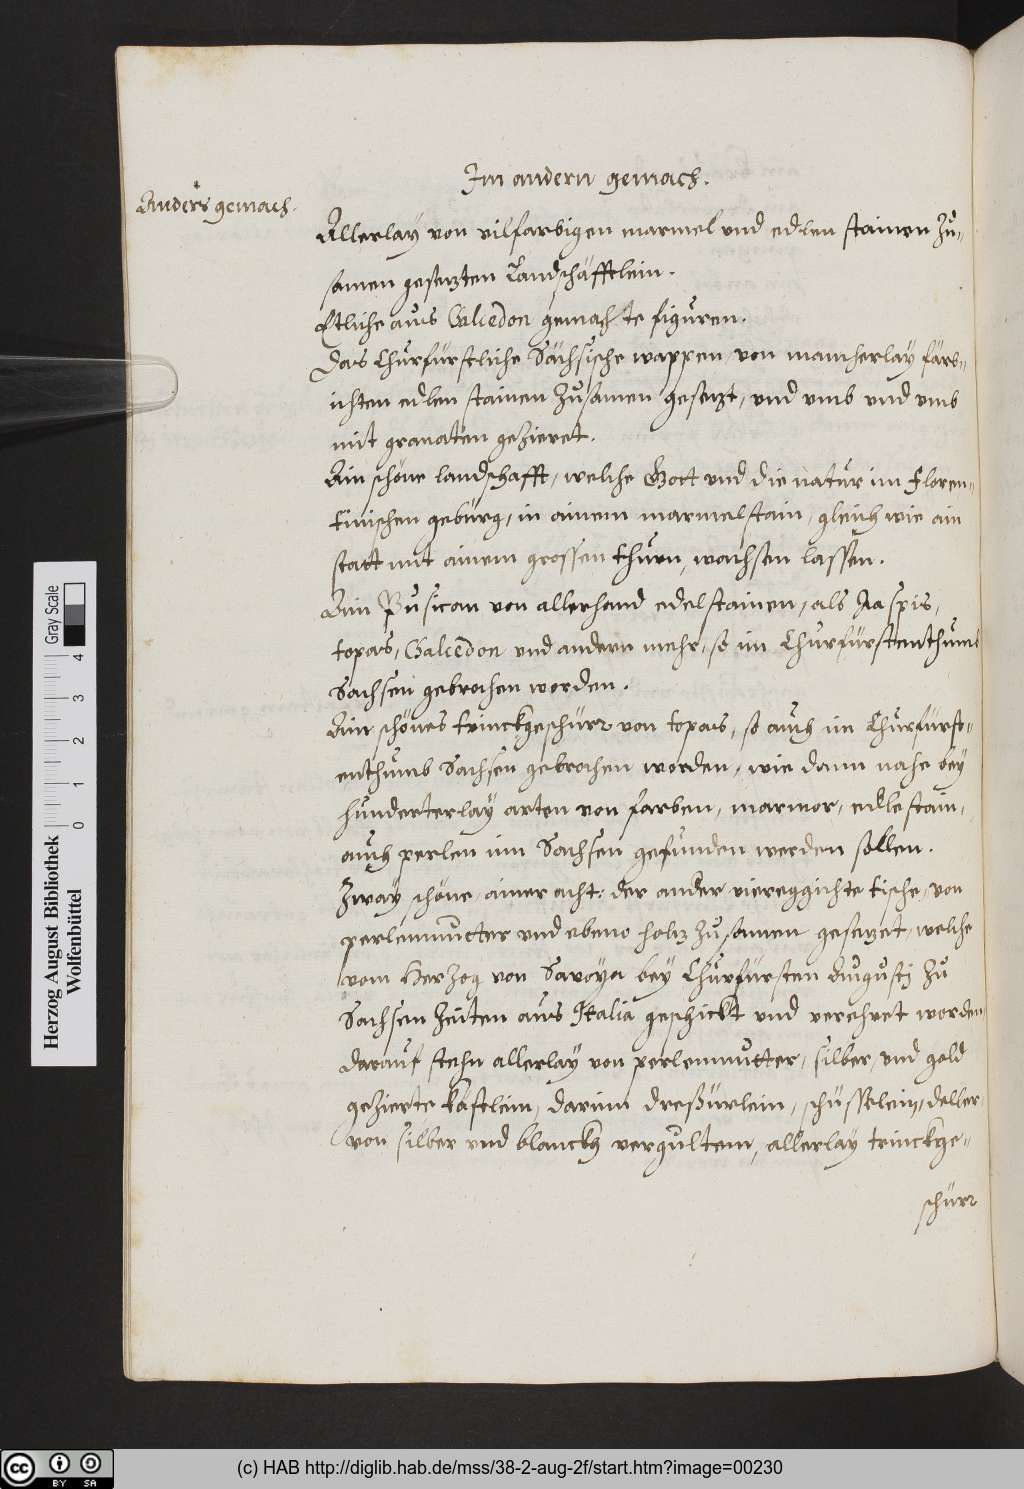 Im andern gemach.
Anders gemach.
Allerlay von vilfarbigen marmel vnd edlen stainen Zu-
samen gesetzten Landschäfftlein.
Etliche aus Calcedon gemachte figuren.
Das Churfürstliche Sächsische wappen, von mancherlay färb-
ichten edlen stainen Zusamen gesetzt, vnd vmb vnd vmb
mit granaten gezieret.
Ain schöne landschafft, welche Gott vnd die natur im Floren-
tinischen gebürg, in ainem marmelstain, gleich wie ain
statt mit ainem grossen thurn, wachsen lassen.
Ain Pusican von allerhand edelstainen, als Jaspis,
topas, Calcedon vnd andern mehr, so im Churfürstenthumb
Sachsen gebrochen worden.
Ain schönes trinckgeschürr von topas, so auch im Churfürst-
enthumb Sachsen gebrochen worden, wie dann nahe bey
hunderterlay arten von farben, marmor, edle stain,
auch perlen inn Sachsen gefunden werden sollen.
Zway schöne, ainer acht: der ander viereggichte tische, von
perlenmutter vnd ebeno holtz Zusamen gesetzet, welche
vom HerZog von Savoya bey Churfürsten Augustj Zu
Sachsen Zeiten aus Italia geschickt vnd verehret worden
darauf stehn allerlay von perlenmutter, silber, vnd gold
gezierte kästlein, darinn dreßürlein, schüsselein, deller,
von silber vnd blanckh vergultem, allerlay trinckge-
schürr
Herzog August Bibliothek
Wolfenbüttel
0 1 2 3 4
Gray Scale
cc BY SA
(c) HAB http://diglib.hab.de/mss/38-2-aug-2f/start.htm?image=00230